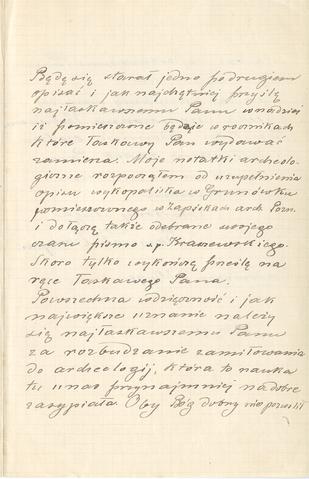 Będę się starał jedno po drugiem
opisać i jak najchętniej przyślę
najłaskawszemu Panu w nadziei
iż pomieszczone będzie w rocznikach
które Łaskawy Pan wydawać
zamierza. Moje notatki archeolo-
giczne rozpocząłem od uzupełnienia
opisu wykopaliska w Grunówku
pomieszczonego w Zapiskach arch. Pozn.
i dołączę także odebrane swojego
czasu pismo ś.p. Kraszewskiego.
Skoro tylko wykonczę prześlę na
ręce Łaskawego Pana.
Powszechna wdzięczność i jak
największe uznanie należy
się najłaskawszemu Panu
za rozbudzanie zamiłowania
do archeologij, która to nauka
tu u nas przynajmniej na dobre
zasypiała. Oby Bóg dobry nie pozwolił